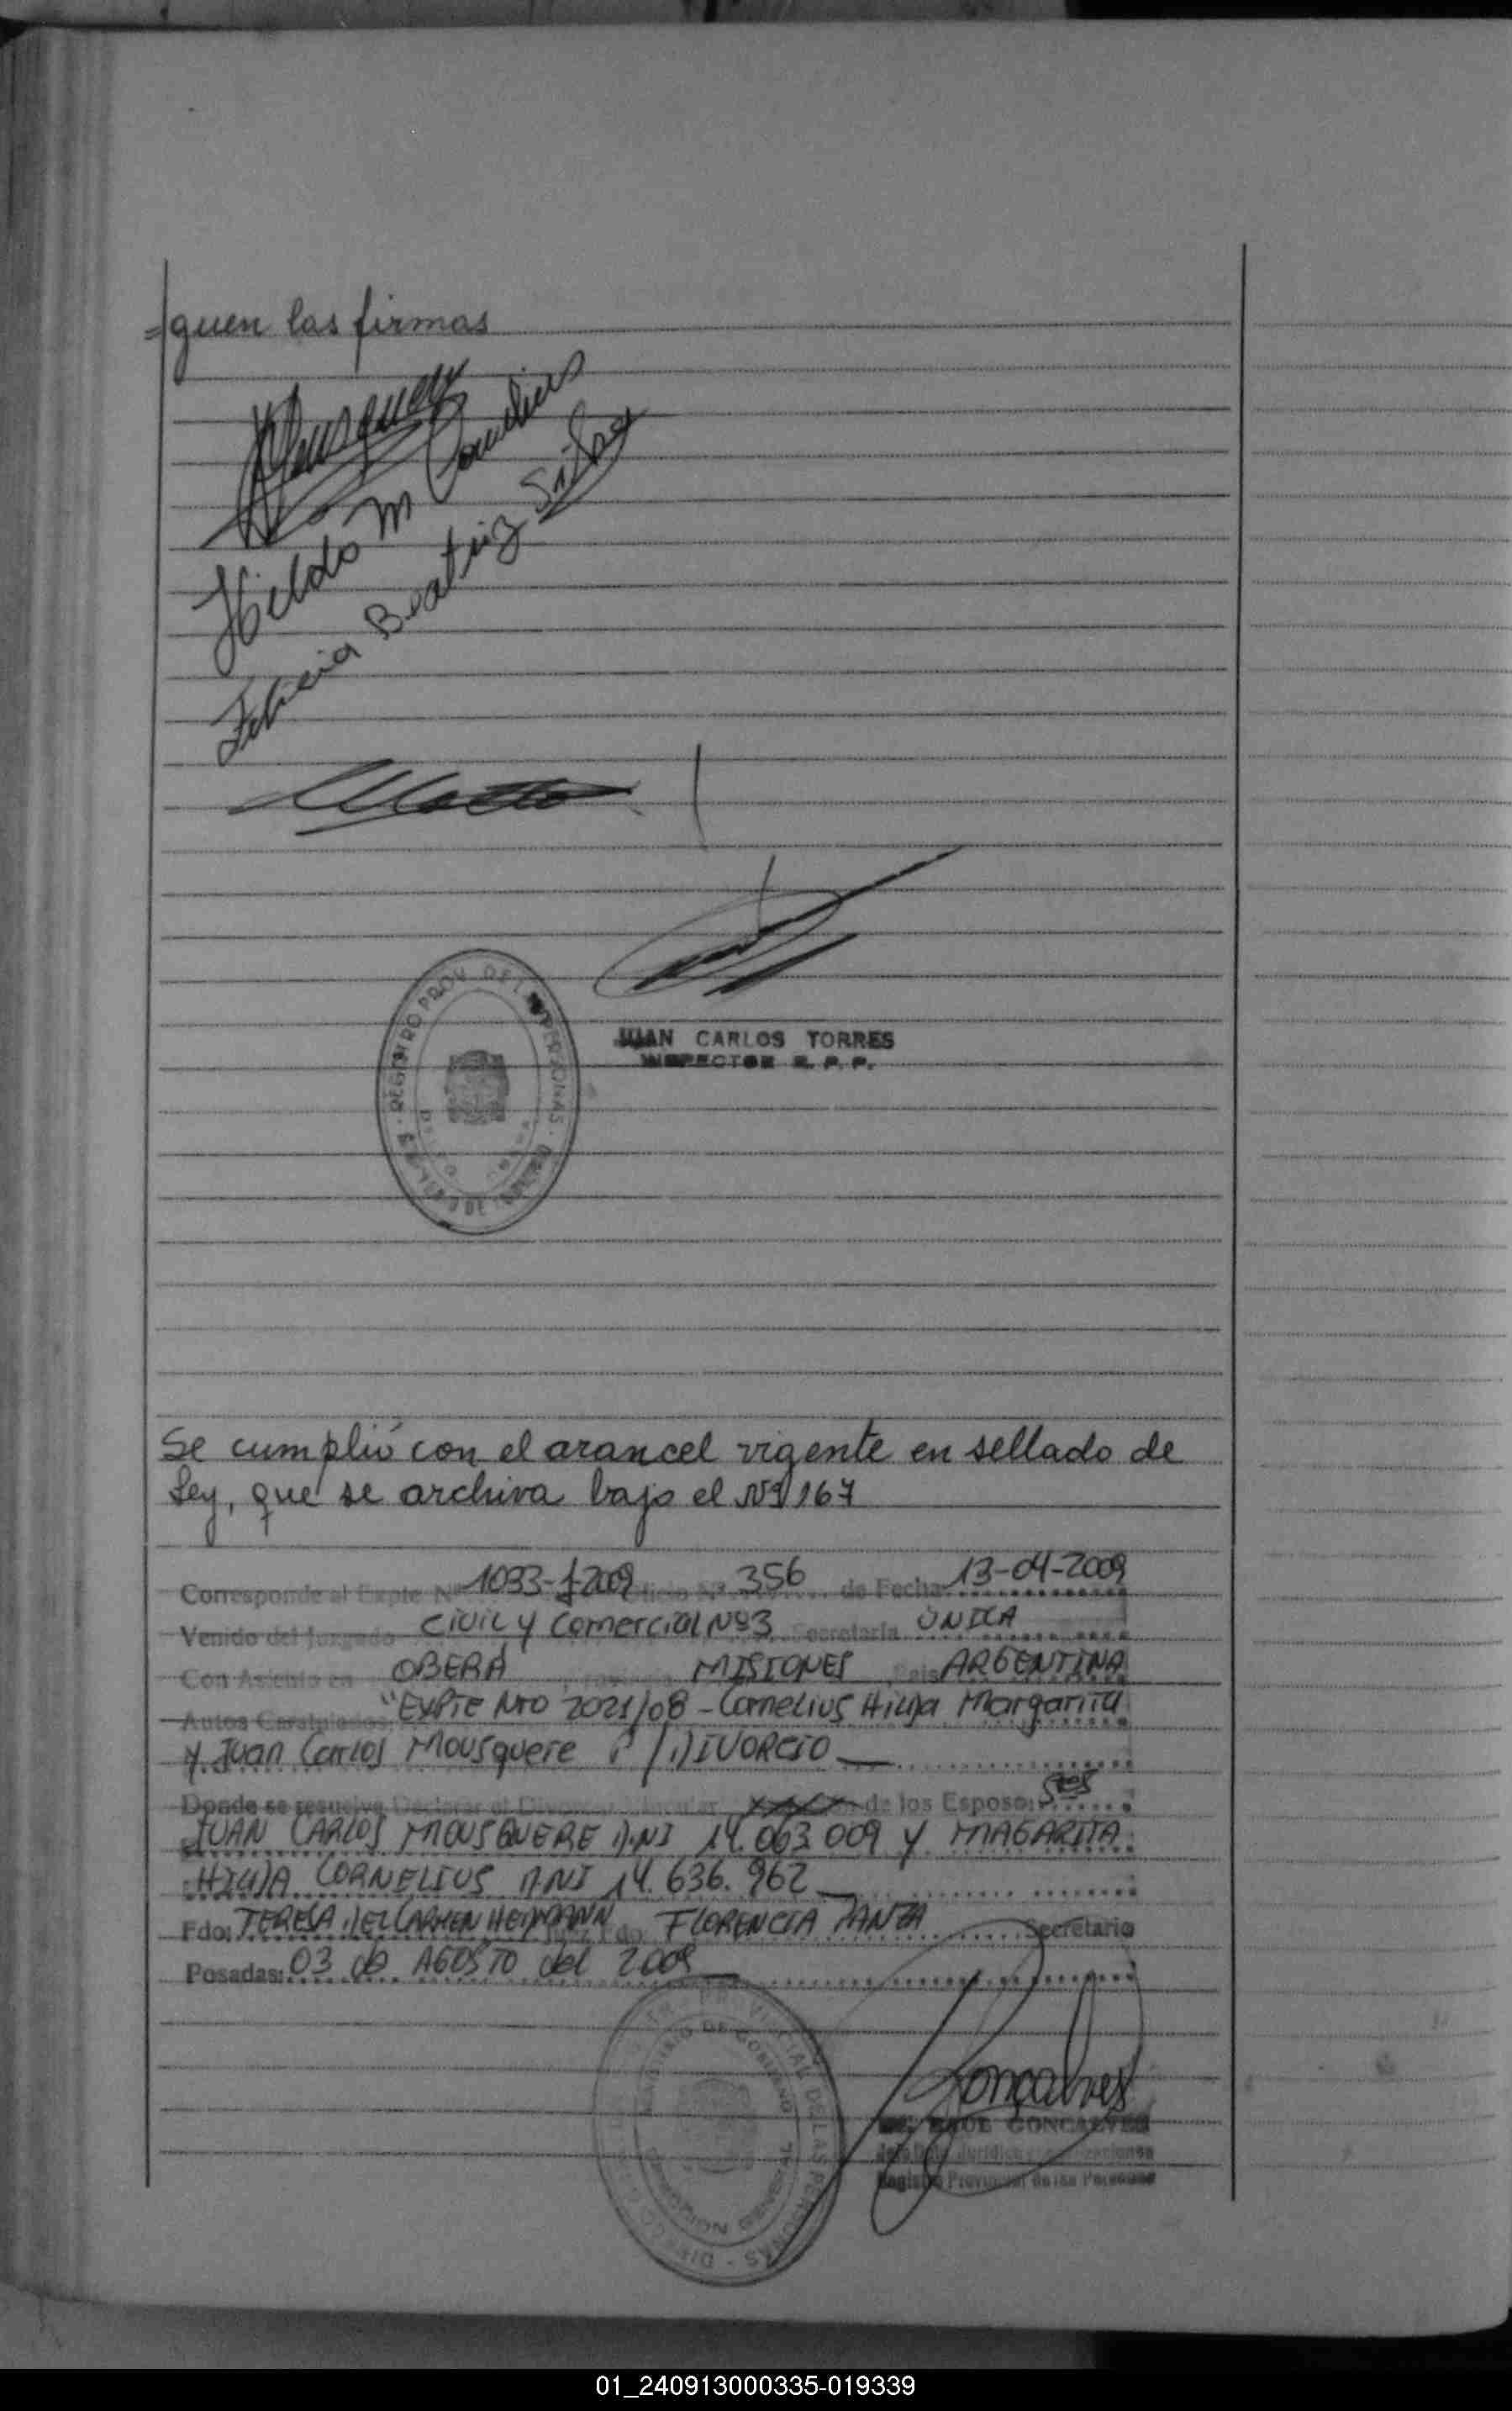 =guen las firmas
Hilda M Cornelius
Felicia Beatriz Silva
REGISTRO PROV. DE LAS PERSONAS
JUAN CARLOS TORRES
INSPECTOR R. P. P.
Se cumplió con el arancel vigente en sellado de
Ley, que se archiva bajo el Nº 167
Corresponde al Expte Nº 1033-J-2009 Oficio Nº 356 de Fecha: 13-04-2009
Venido del Juzgado Civil y Comercial Nº 3 Secretaría ÚNICA
Con Asiento en OBERÁ MISIONES País ARGENTINA
Autos Caratulados: "EXPTE Nro 2021/08 - Cornelius Hilda Margarita
y Juan Carlos Mousquere S/DIVORCIO
Donde se resuelve Declarar el Divorcio Vincular de los Esposos
JUAN CARLOS MOUSQUERE D.NI 14.063 009 Y MAGARITA
HILDA CORNELIUS D.NI 14.636.962
Fdo: TERESA DEL CARMEN HEDMANN Fdo. FLORENCIA PANZA Secretario
Posadas: 03 de AGOSTO del 2009
Goncalves
RAUL GONCALVES
Registro Provincial de las Personas
01_240913000335-019339